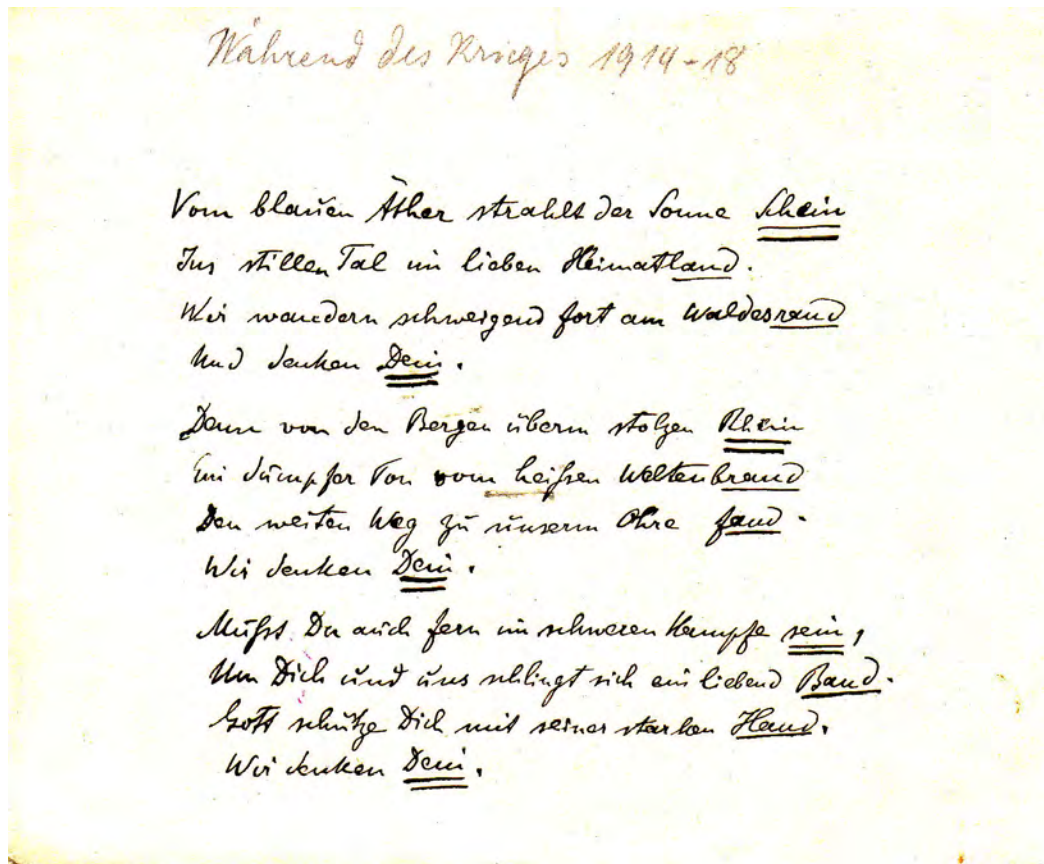 Während des Krieges 1914-18
Vom blauen Äther strahlt der Sonne Schein
Ins stillen Tal im lieben Heimatland.
Wir wandern schweigend fort am Waldesrand
Und denken Dein.
Denn von den Bergen überm stolzen Rhein
Ein dumpfer Ton vom heißen Weltenbrand
Den weiten Weg zu unserm Ohre fand.
Wir denken Dein.
Mußt Du auch fern im schweren Kampfe sein,
Um Dich und uns schlingt sich ein liebend Band.
Gott schütze Dich mit seiner starken Hand.
Wir denken Dein.